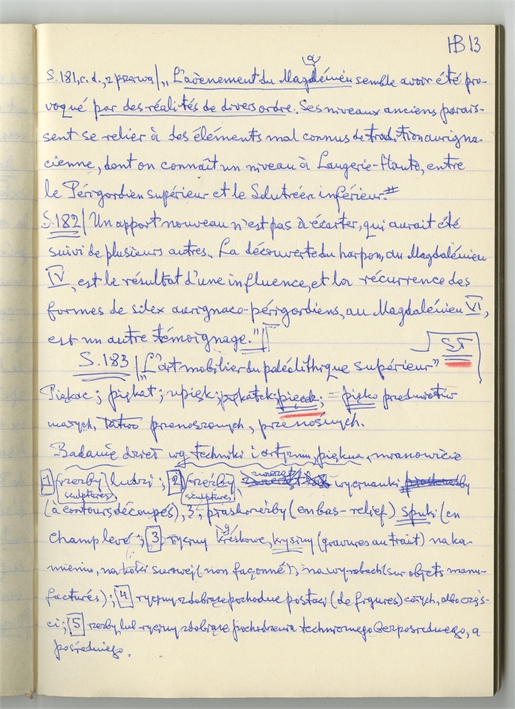 HB 13
S. 181, c.d., z przerwą/ „L'avènement du Magdalénien semble avoir été pro-
voqué par des réalités de divers ordre. Ses niveaux anciens parais-
sent se relier à des éléments mal connus de tradition aurigna-
cienne, dont on connaît un niveau à Laugerie-Haute, entre
le Périgordien supérieur et le Solutréen inférieur.#
S. 182/ Un apport nouveau n'est pas à écarter, qui aurait été
suivi de plusieurs autres. La découverte du harpon, au Magdalénien
IV, est le résultat d'une influence, et la récurrence des
formes de silex aurignaco-périgordiens, au Magdalénien VI,
est un autre témoignage."
S. 183/ „L'art mobilier du paléolithique supérieur"
piękat; upięk; = piękno przedmiotów
przenoszonych, przenośnych.
Badanie dzieł wg techniki i
1 rzeźby ludzi; 2 rzeźby zwierząt wycinanki
sculptures, sculptures,
(à contours découpés), 3, płaskorzeźby (en bas-relief) (en
champlevé; 3 rysuny kreskowe, (gravures au trait) na ka-
mieniu, na kości surowej (non façonné), na wyrobach (sur objets manu-
facturés); 4 ryciny zdobiące pochodne postaci (de figures) całych, albo częś-
ci; 5 rzeźby lub ryciny zdobiące pochodzenia technicznego bezpośredniego, a
pośredniego.